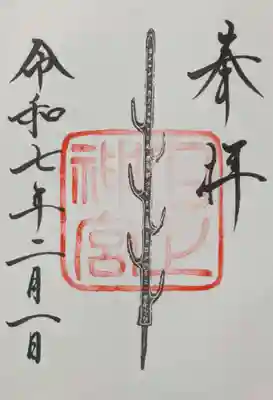 奉拝
石上
神宮
令和七年二月一日